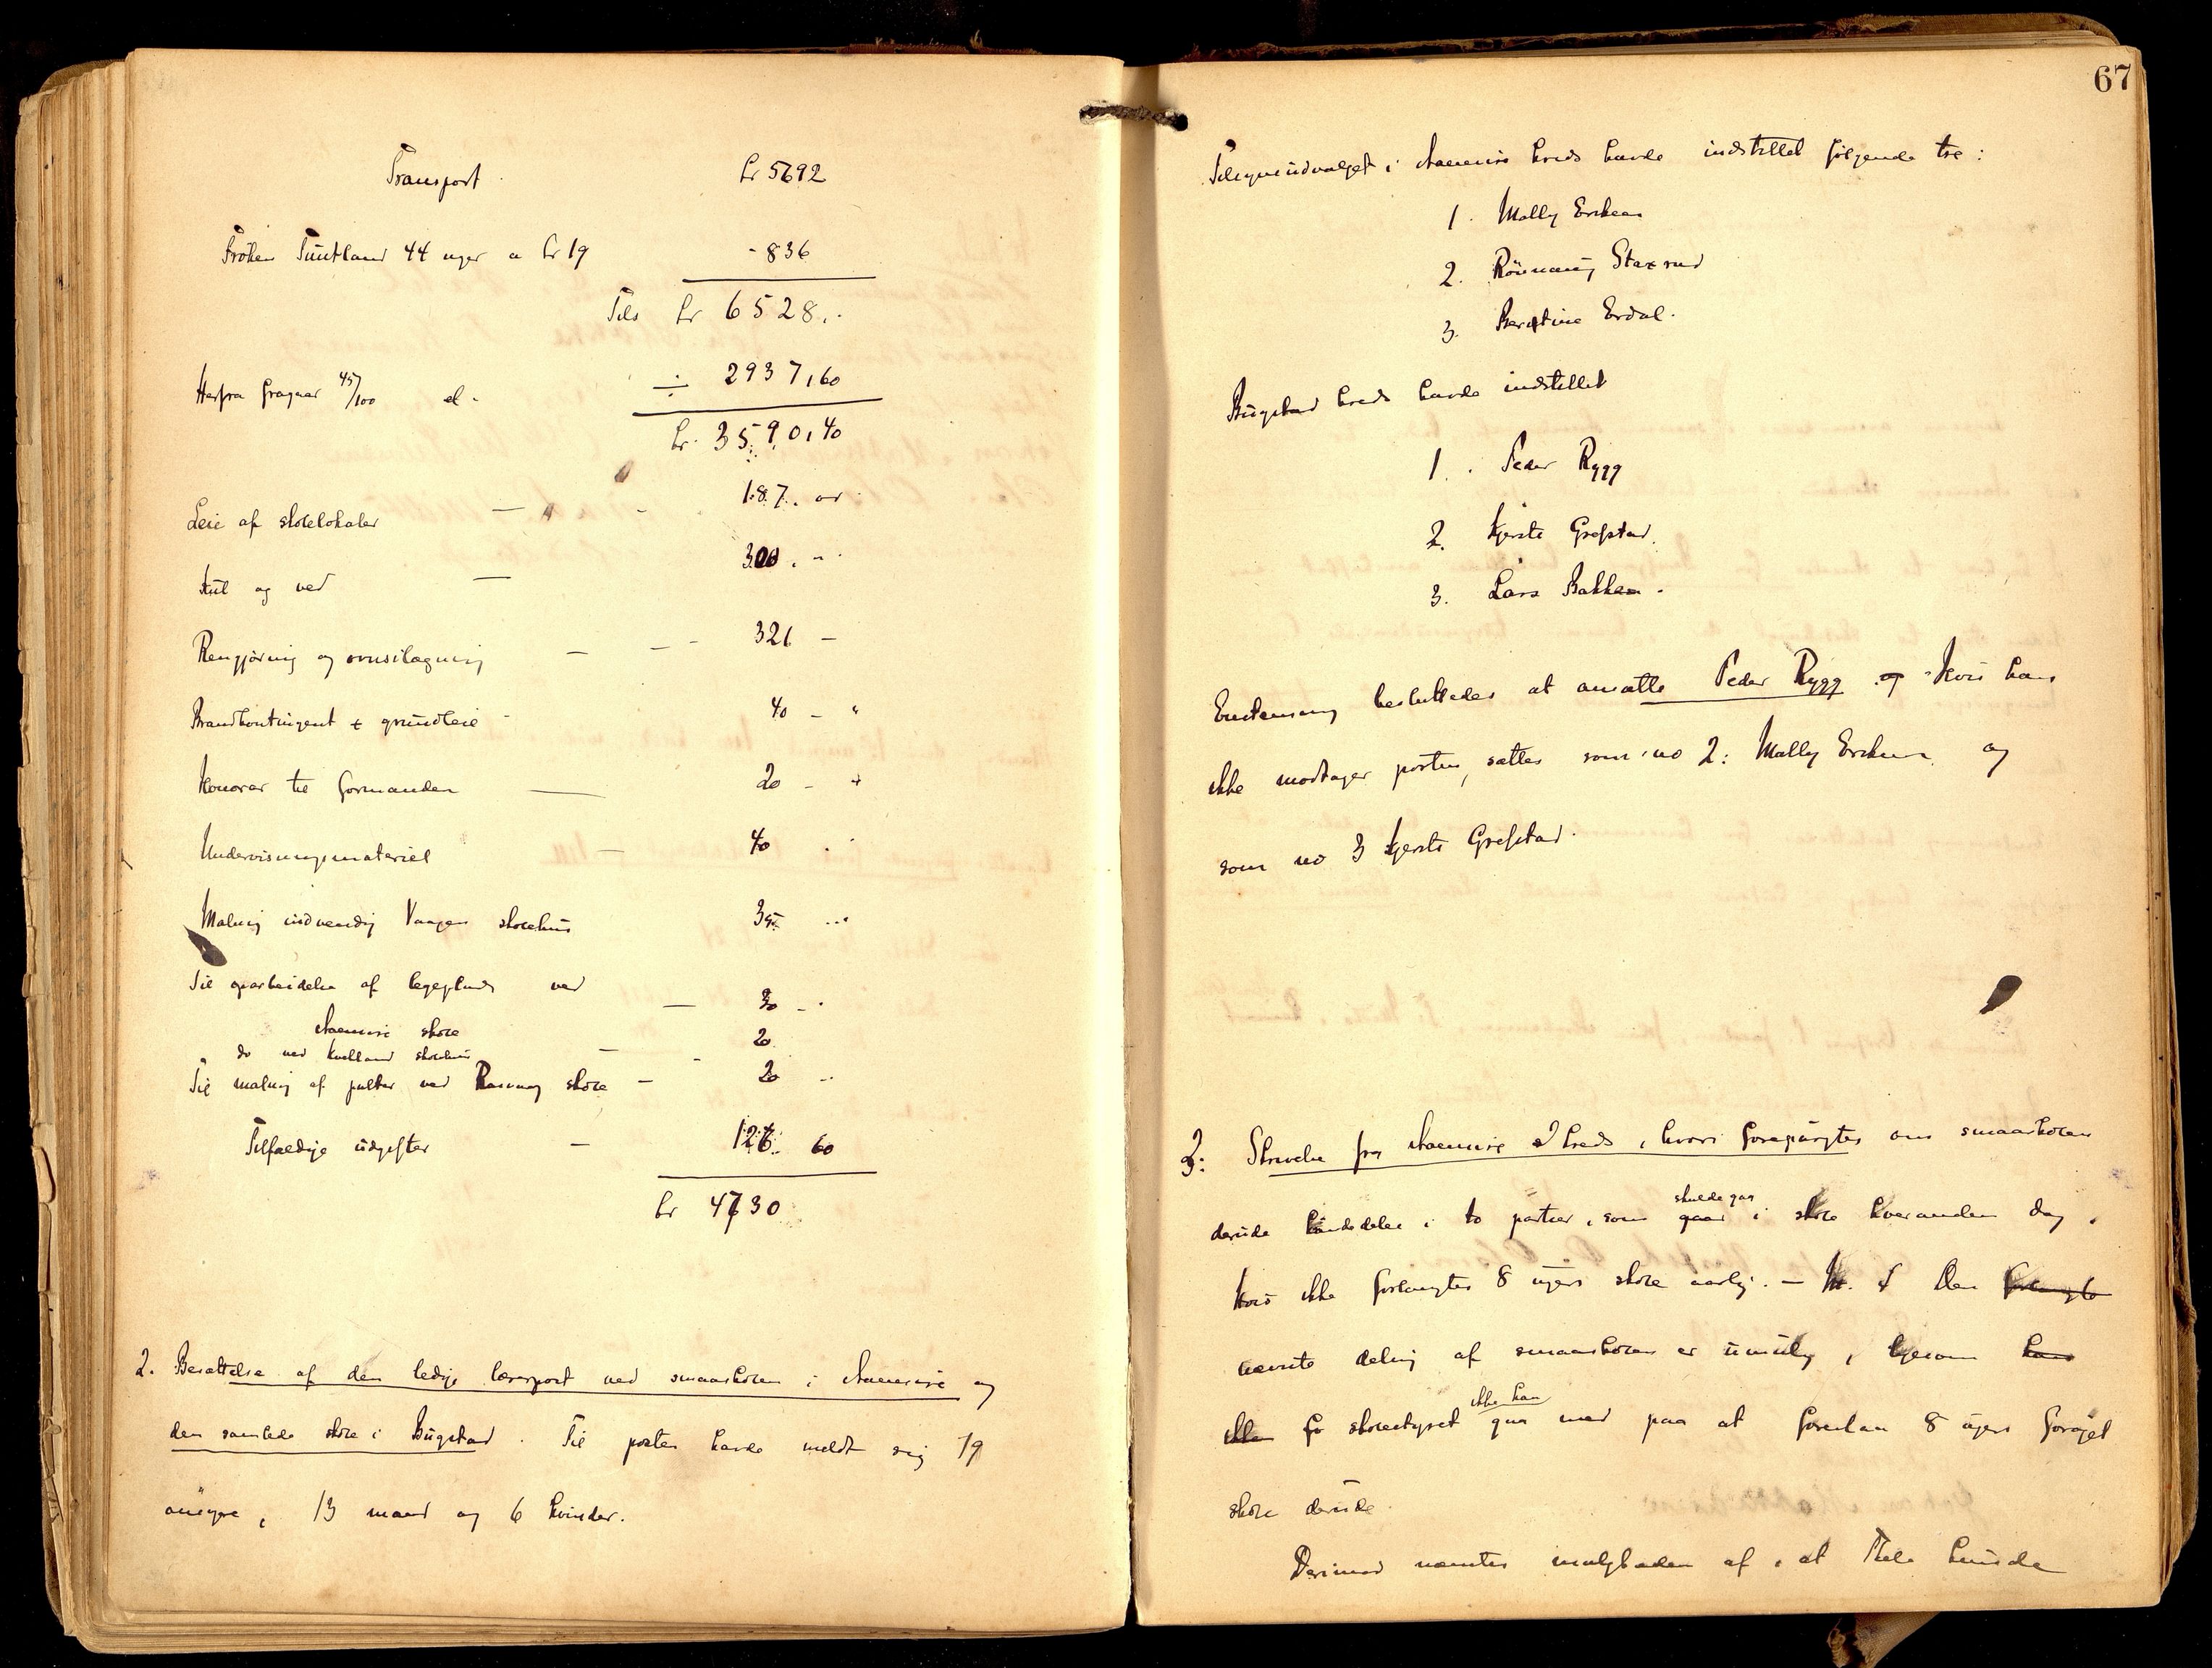 Transport kr 5692
Frøken Tuntland 44 uger a kr 19 - 836
Tils kr 6528,-
Herfra fragaar 45/100 el. ÷ 2937,60
kr. 3590,40
Leie af skolelokaler — 187.
Kul og ved — 300.
Rengjøring og ovnsilægning — 321 —
Brandkontingent & grundleie - 40 - "
Honorar til formanden — 20 - "
Undervisningsmateriel — 40
Maling indvendig Vaagen skolehus 35
Til oparbeidelse af legeplads ved — 30 -
skole
do ved Kvelland skolehus — 20
Til maling af pulter ved skole — 20
Tilfældige udgifter — 126 60
kr 4730
2. Besættelse af den ledige lærerpost ved smaaskolen i og
den samlede skole i Bügstad. Til posten havde meldt sig 19
ansøgere, 13 mænd og 6 kvinder.
67
Tilsynsudvalget i kreds havde indstillet følgende tre:
1. Molly Eriksen
2. Staxrud
3. Erdal.
Bügstad kreds havde indstillet
1. Peder Rygg
2. Kjersti Grefstad.
3. Lars Bakken.
Enstemmig besluttedes at ansætte Peder Rygg og hvis han
ikke modtager posten, sættes som no 2: Molly Eriksen og
som no 3 Kjersti Grefstad.
3: Skrivelse fra kreds, hvori forespørges om smaaskolen
derude kunde deles i to partier, som skulde gaa i skole hveranden dag,
hvis ikke forlangtes 8 ugers skole aarlig. — Den
nævnte deling af smaaskolen er umulig, ligesom
skolestyret ikke kan gaa med paa at 8 ugers forøget
skole derude.
Derimod nævntes muligheden af, at kunde